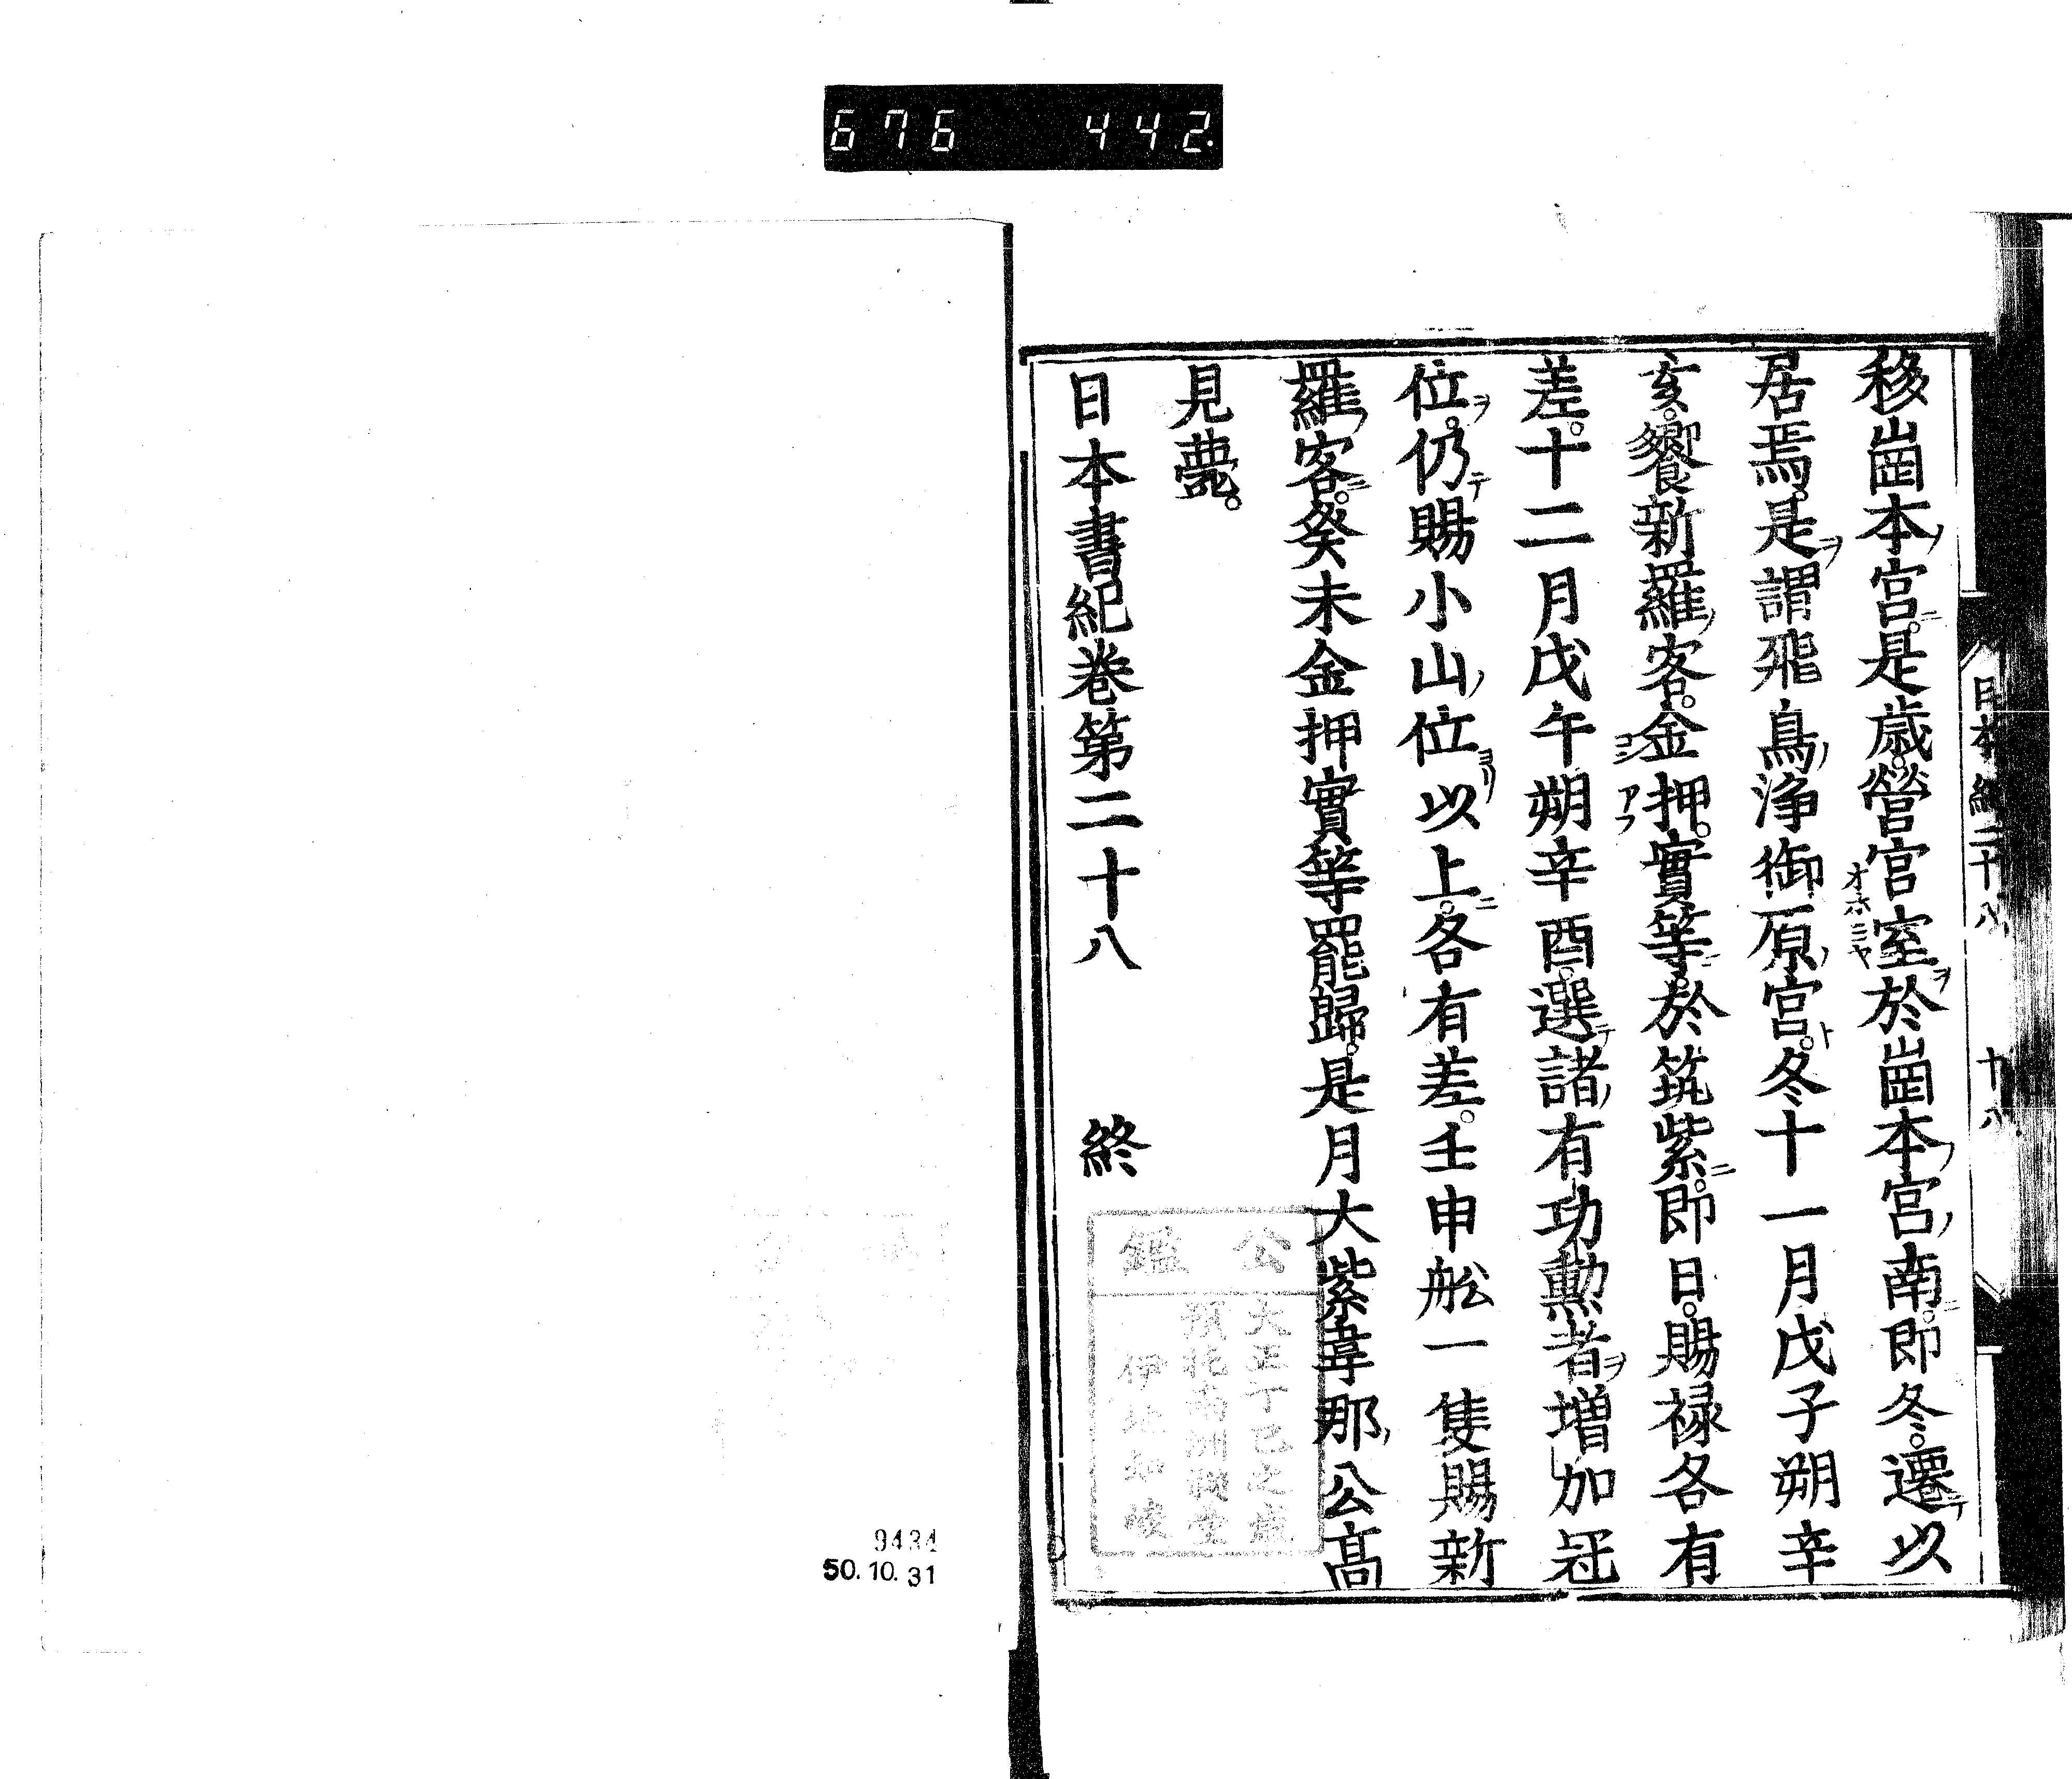 676 442.
移崗本宮。是歳。營宮室於崗本宮南。即冬。遷以
居焉。是謂飛鳥浄御原宮。冬十一月戊子朔辛
亥。饗新羅客。金押。實等。於筑紫。即日。賜禄各有
差。十二月戊午朔辛酉。選諸有功勲者増加冠
位。仍賜小山位以上。各有差。壬申舩一隻賜新
羅客。癸未金押實等罷歸。是月大紫韋那公高
見薨。
日本書紀巻第二十八 終
日本紀二十八 十八
公鑑
大正丁巳之歳
預托南洲
伊地知峻
9434
50.10.31